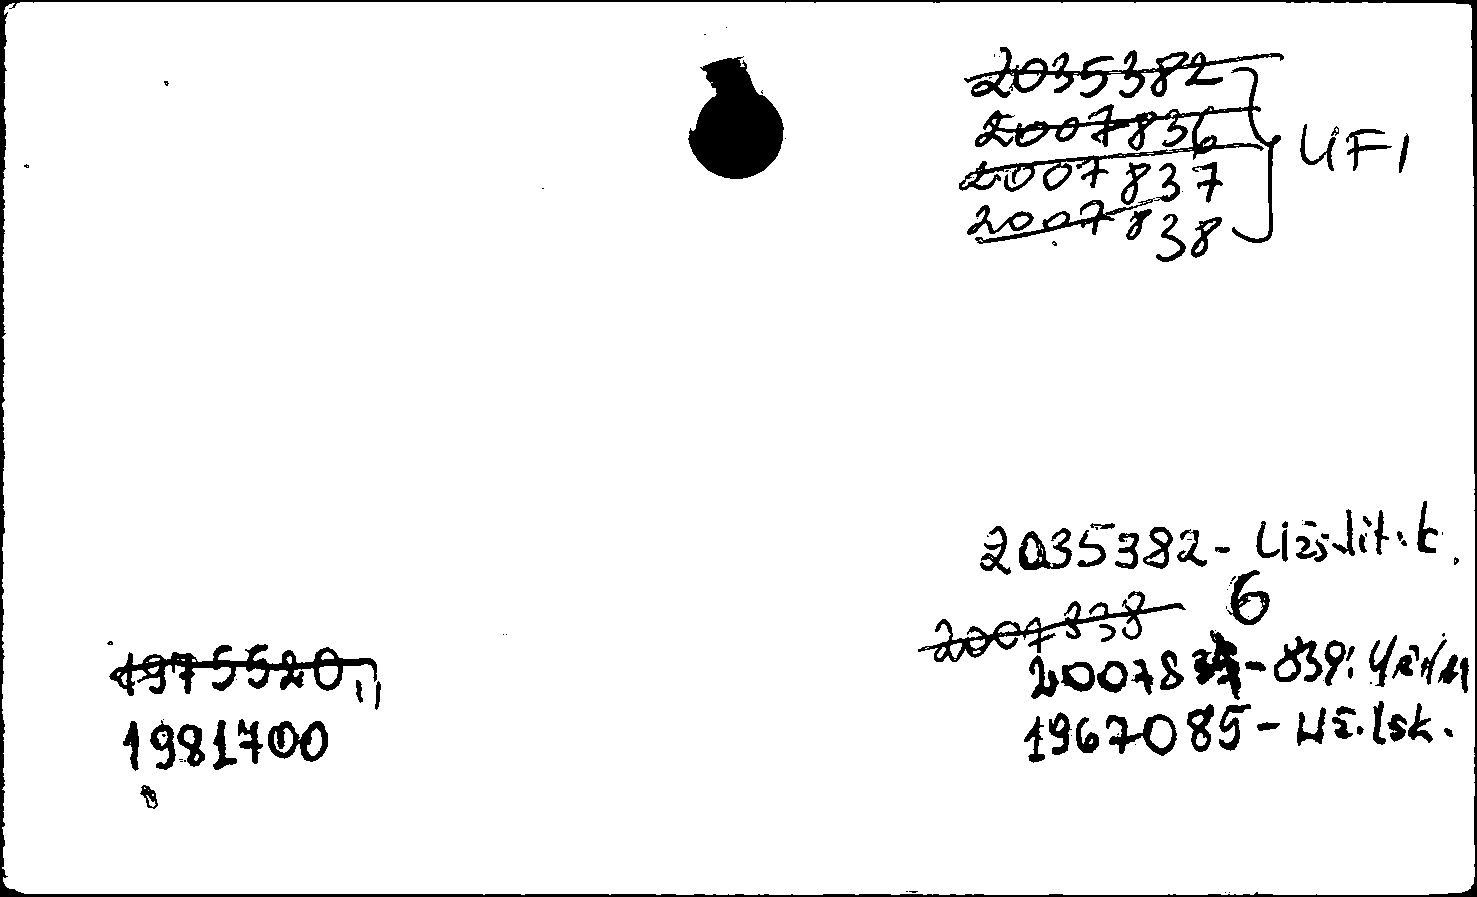 2035382
2007836
2007837
2007838
UF1
2035382-
6
2007838
2007837-839:
1967085-
1975520
1981700